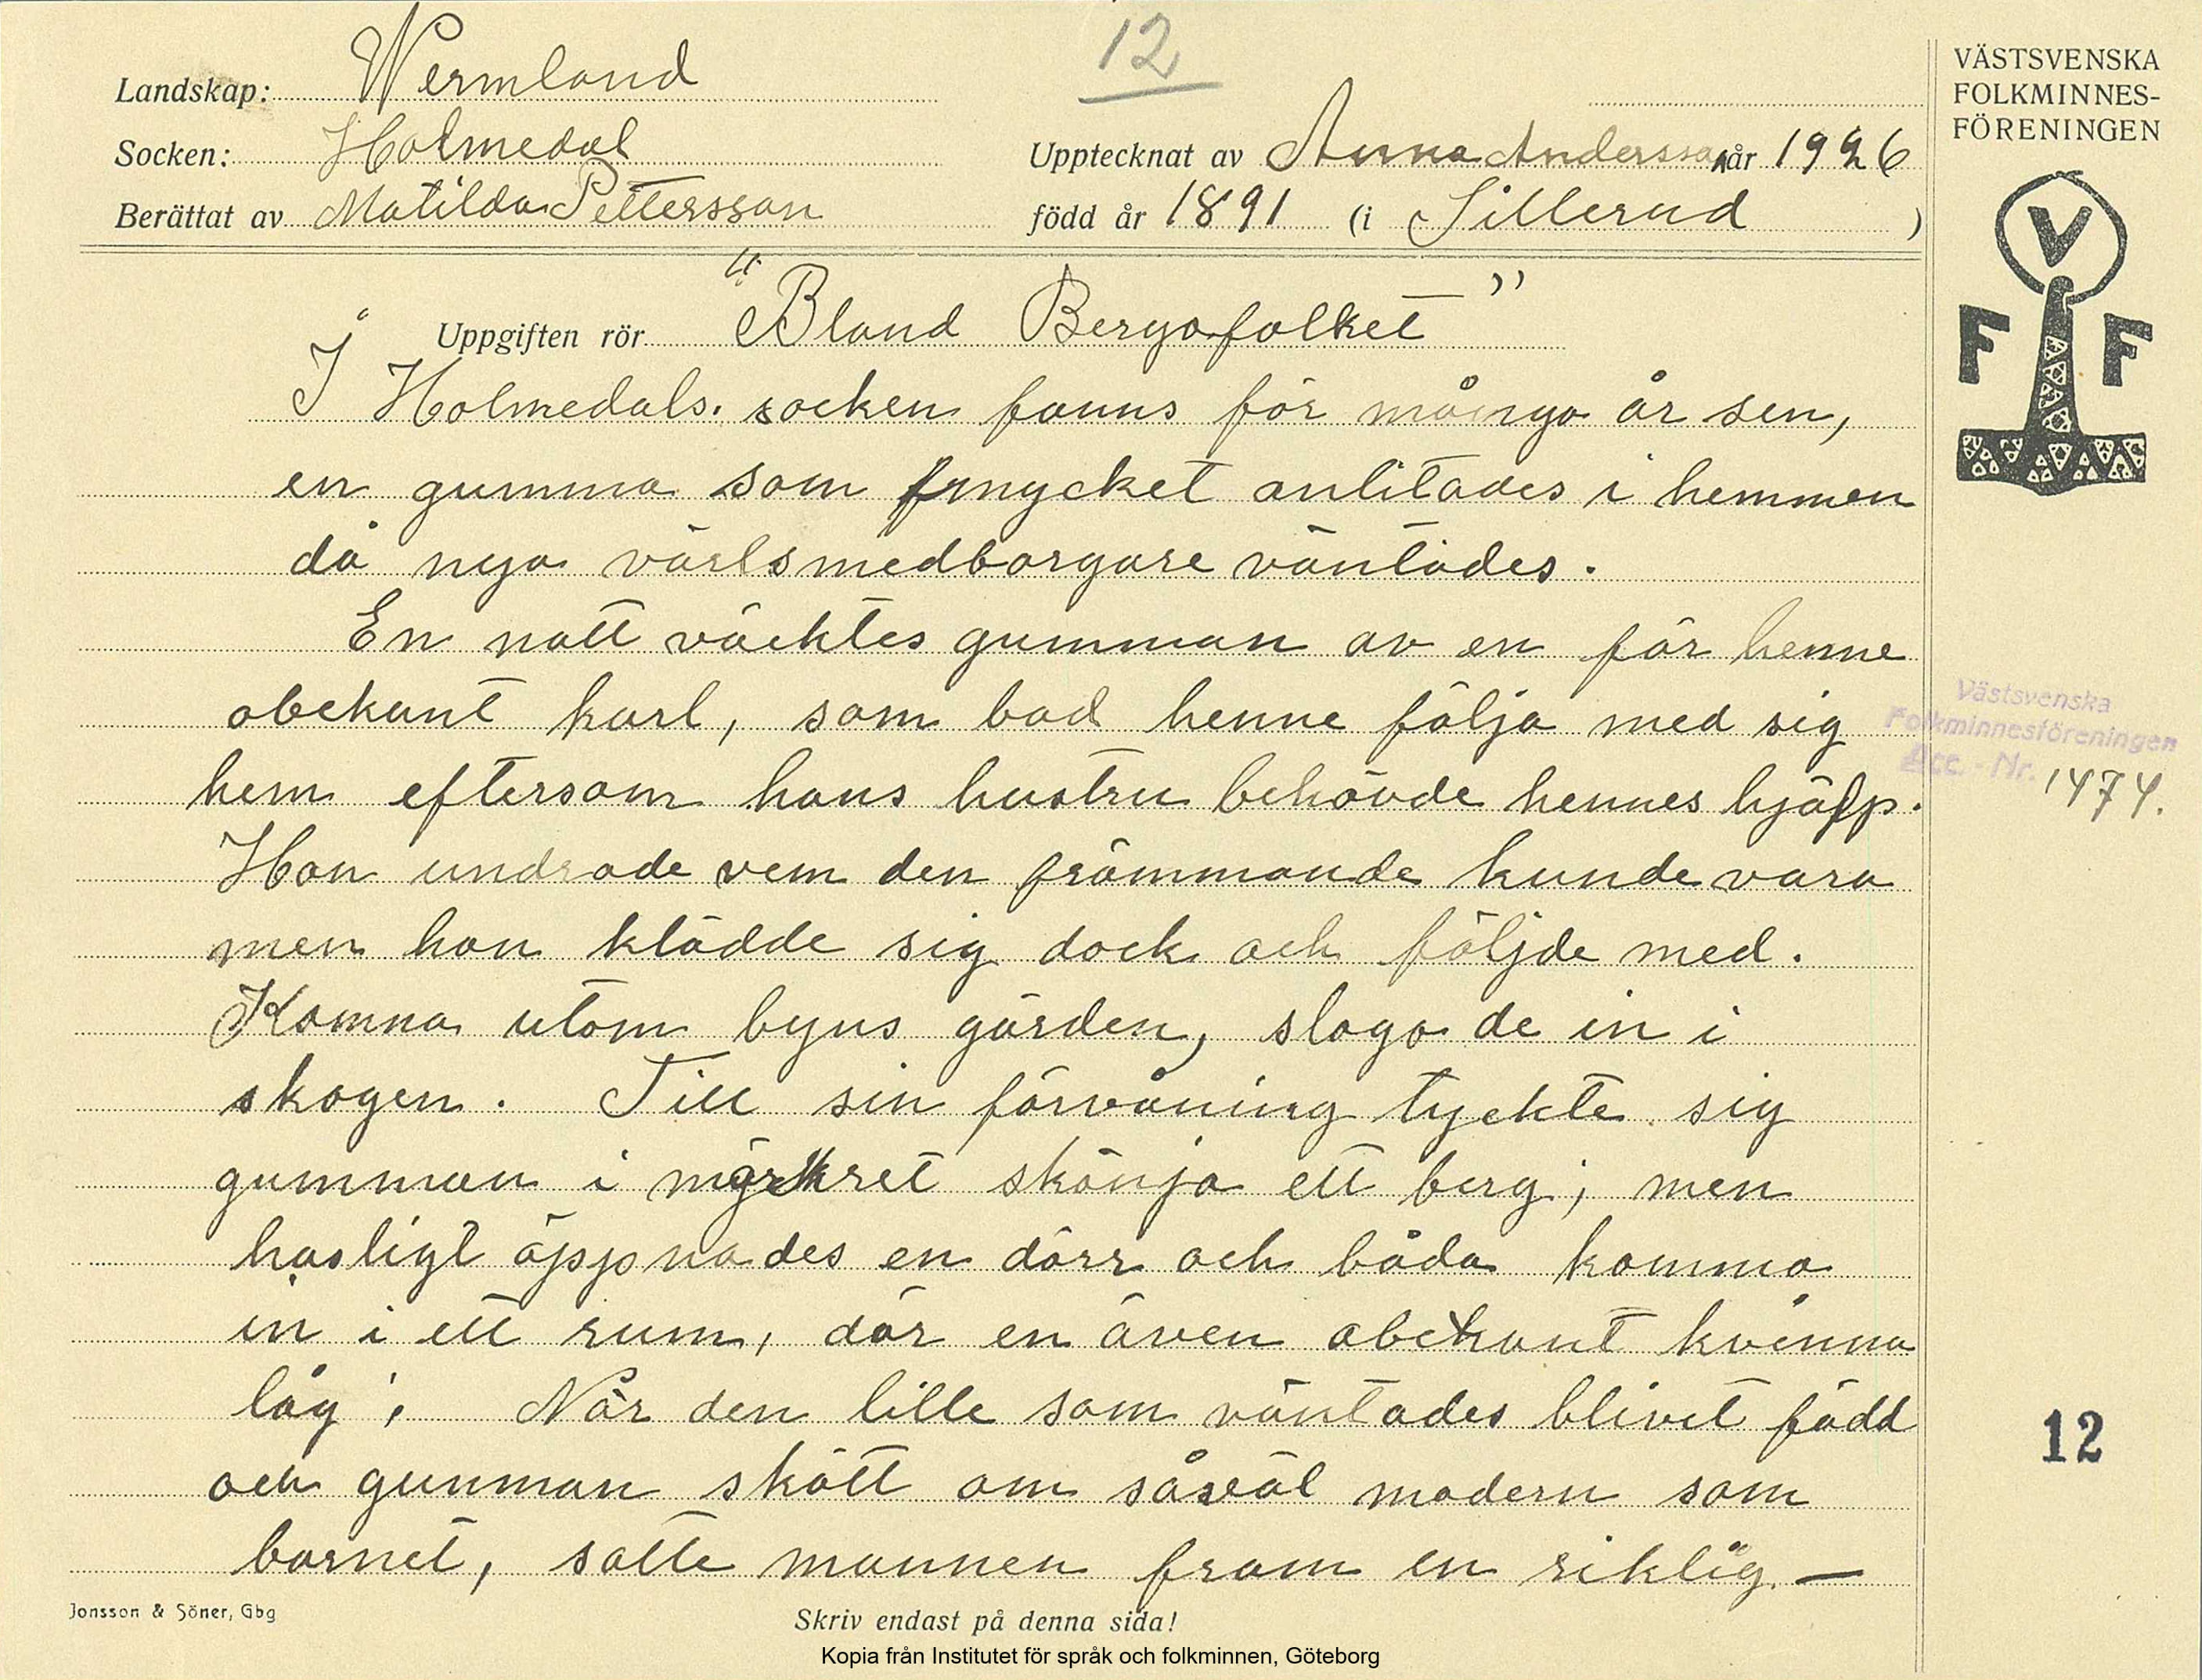 12
Landskap: Wermland
Socken: Holmedal
Berättat av Matilda Pettersson
Upptecknat av Anna Andersson år 1926
född år 1891 (i Sillerud)
VÄSTSVENSKA
FOLKMINNES-
FÖRENINGEN
V
F F
Uppgiften rör "Bland Bergafolket"
I Holmedals. socken fanns för många år sen,
en gumma som mycket anlitades i hemmen
då nya världsmedborgare väntades.
En natt väcktes gumman av en för henne
obekant karl, som bad henne följa med sig
hem eftersom hans hustru behövde hennes hjälp.
Hon undrade vem den främmande kunde vara
men hon klädde sig dock och följde med.
Komna utom byns gärden, slogo de in i
skogen. Till sin förvåning tyckte sig
gumman i mörkret skönja ett berg; men
hasligt öppnades en dörr och båda komma
in i ett rum, där en även obekant kvinna
låg; När den lille som väntades blivit född
och gunman skött om såväl modern som
barnet, satte mannen fram en riklig –
Västsvenska
Folkminnesföreningen
Acc. - Nr. 1474.
12
Jonsson & Söner, Gbg
Skriv endast på denna sida!
Kopia från Institutet för språk och folkminnen, Göteborg